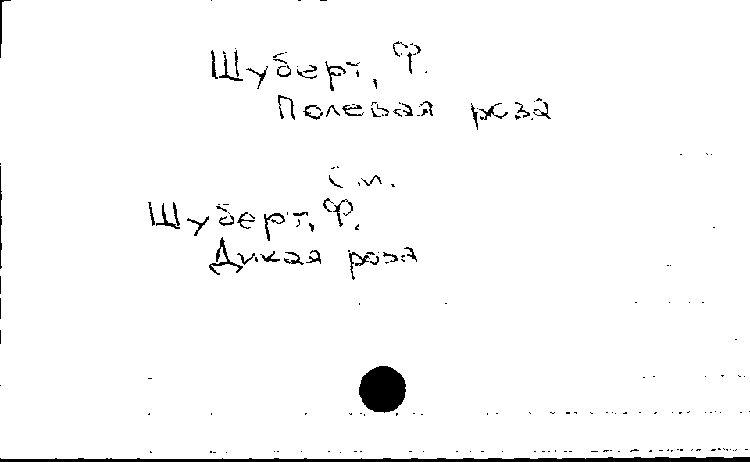 Шуберт, Ф.
Полевая роза
См.
Шуберт, Ф.
Дикая роза